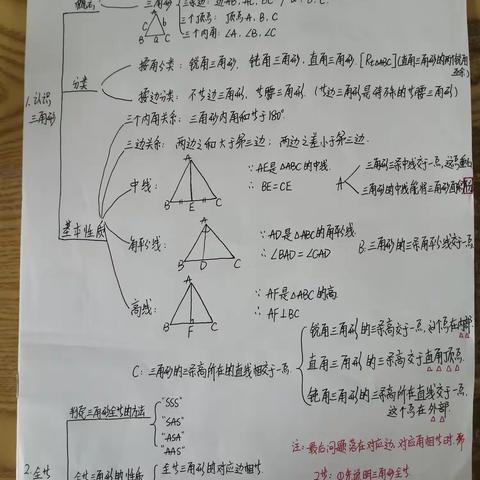 概念
三角形
三条边：边AB, AC, BC
三个顶点：顶点A, B, C
三个内角：∠A, ∠B, ∠C
b
a
B
C
1.认识
三角形
分类
按角分类：锐角三角形, 钝角三角形, 直角三角形.[Rt△ABC]
按边分类：不等边三角形, 等腰三角形 (等边三角形是特殊的等腰三角形)
基本性质
三个内角关系：三角形内角和等于180°
三边关系：两边之和大于第三边；两边之差小于第三边.
中线：
A
B E C
∵ AE是△ABC的中线.
∴ BE=CE
A
三角形三条中线交于一点, 这点
三角形的中线能将三角形面积
角平分线：
A
B D C
∵ AD是△ABC的角平分线.
∴ ∠BAD=∠CAD
B：三角形的三条角平分线交于一点.
高线：
A
B F C
∵ AF是△ABC的高
∴ AF⊥BC
C：三角形的三条高所在的直线相交于一点.
锐角三角形的三条高交于一点, 这个点在内部.
直角三角形的三条高交于直角顶点.
钝角三角形的三条高所在直线交于一点,
这个点在外部.
2.全等
判定三角形全等的方法
"SSS"
"SAS"
"ASA"
"AAS"
注：最后问题落在对应边, 对应角相等时
全等三角形的性质
全等三角形的对应边相等
2步：①先说明三角形全等